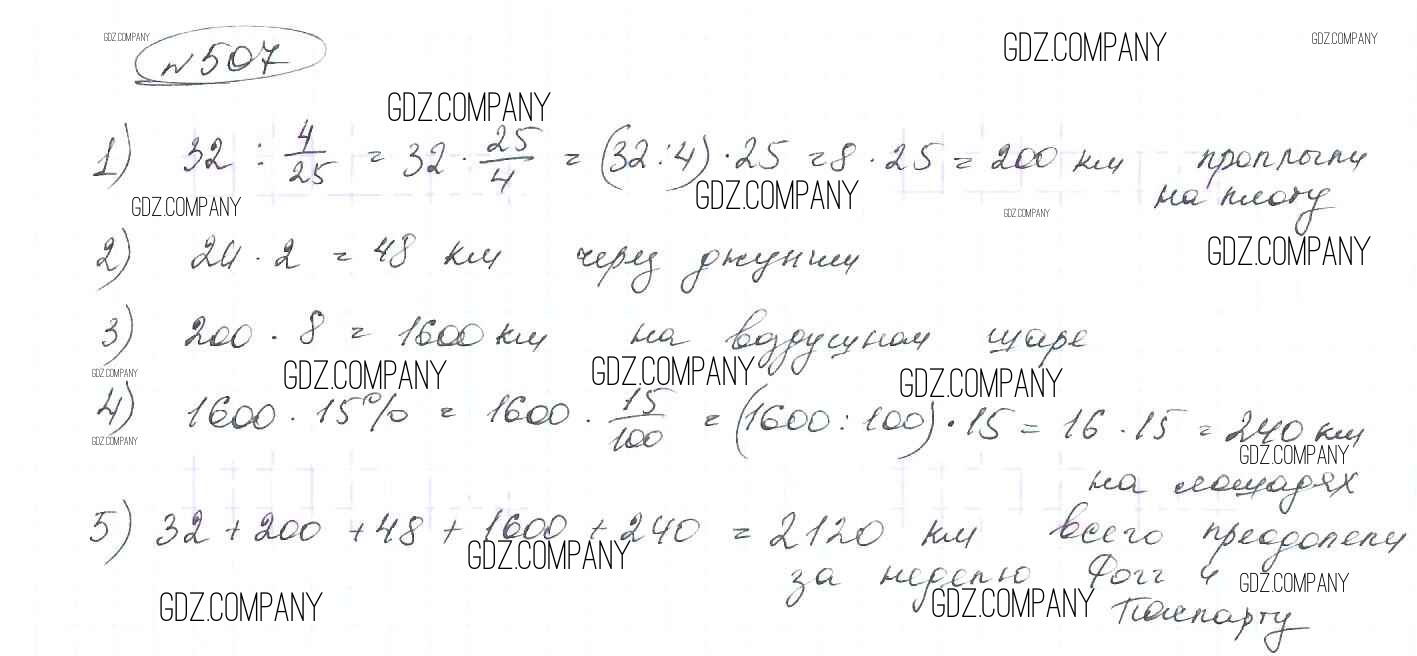 GDZ.COMPANY
№507
GDZ.COMPANY
GDZ.COMPANY
GDZ.COMPANY
1) 32 : 4/25 = 32 · 25/4 = (32:4) · 25 = 8 · 25 = 200 км проплыли
на плоту
GDZ.COMPANY
GDZ.COMPANY
GDZ.COMPANY
GDZ.COMPANY
2) 24 · 2 = 48 км через джунгли
3) 200 · 8 = 1600 км на воздушном шаре
GDZ.COMPANY
GDZ.COMPANY
GDZ.COMPANY
GDZ.COMPANY
4) 1600 · 15% = 1600 · 15/100 = (1600 : 100) · 15 = 16 · 15 = 240 км
GDZ.COMPANY
GDZ.COMPANY
на лошадях
5) 32 + 200 + 48 + 1600 + 240 = 2120 км всего преодолели
GDZ.COMPANY
за неделю Фогг и
GDZ.COMPANY
GDZ.COMPANY
GDZ.COMPANY
Паспарту